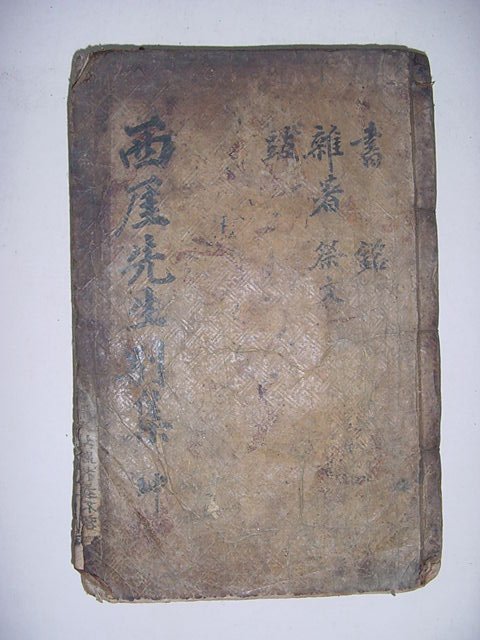 書 銘
雜著 祭文
跋
西厓先生別集 坤